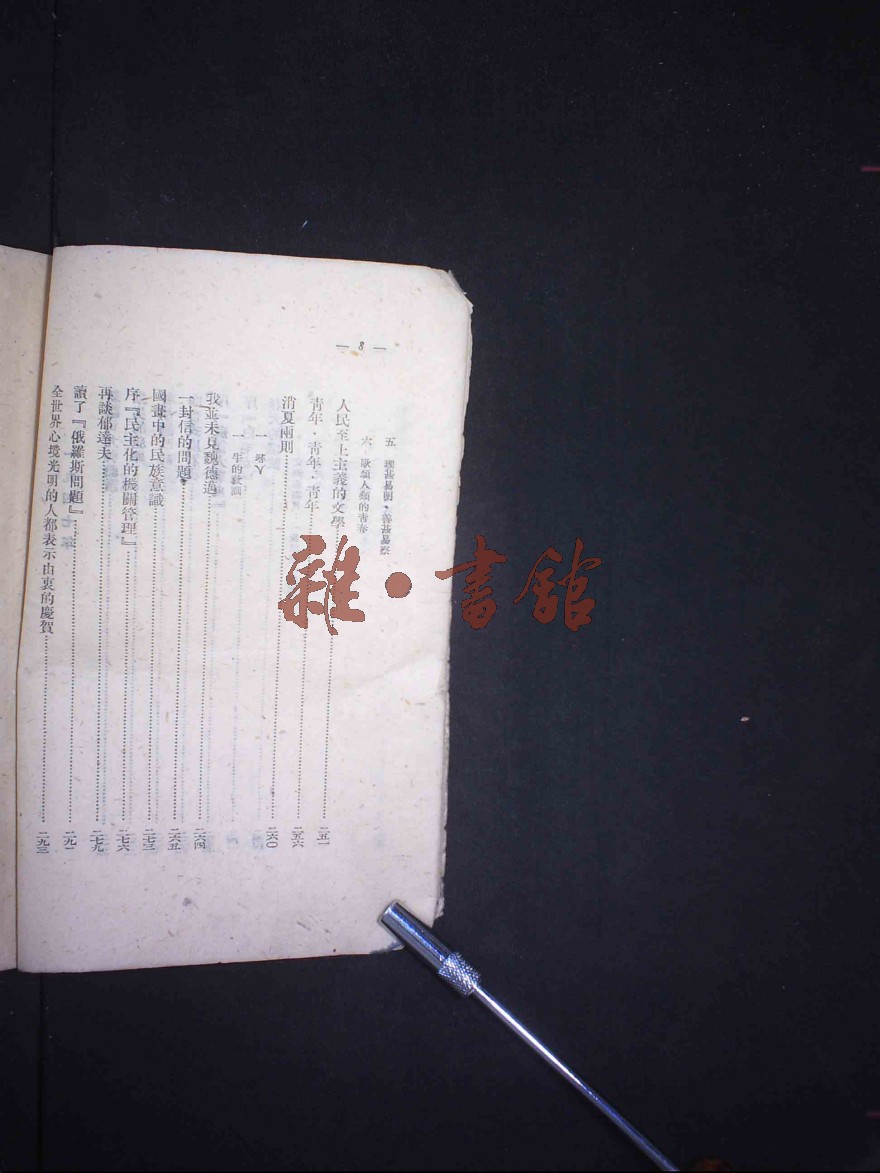 — 8 —
五 理甚易明·善甚易察
六 歌頌人類的青春
人民至上主義的文學…………二五一
青年·青年·青年…………二五六
消夏兩則…………二六〇
一 財人
一 牛的教訓
我並未見魏德邁…………二六四
一封信的問題…………二六五
國畫中的民族意識…………二七三
序『民主化的機關管理』…………二七六
再談郁達夫…………二七九
讀了『俄羅斯問題』…………二九一
全世界心境光明的人都表示由衷的慶賀…………二九三
雜·書館